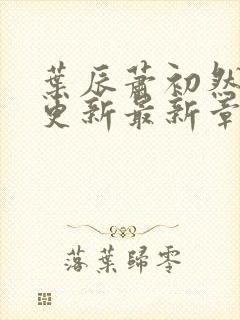 葉辰蕭初然
更新最新章
落葉歸零